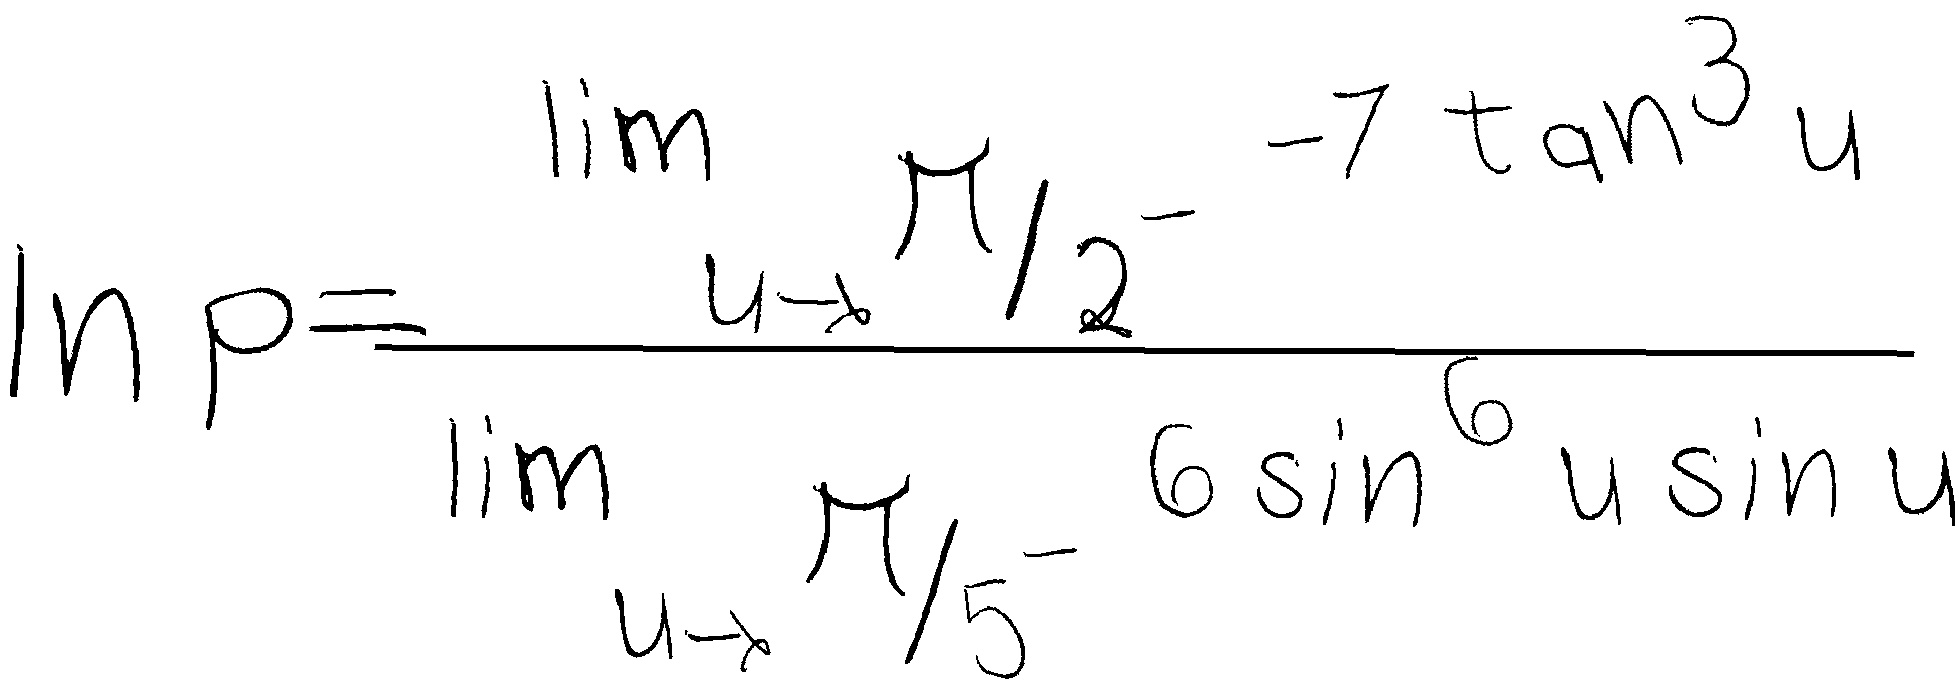 ln p = \frac{\lim_{u \to \pi/2^-} -7 \tan^3 u}{\lim_{u \to \pi/5^-} 6 \sin^6 u \sin u}